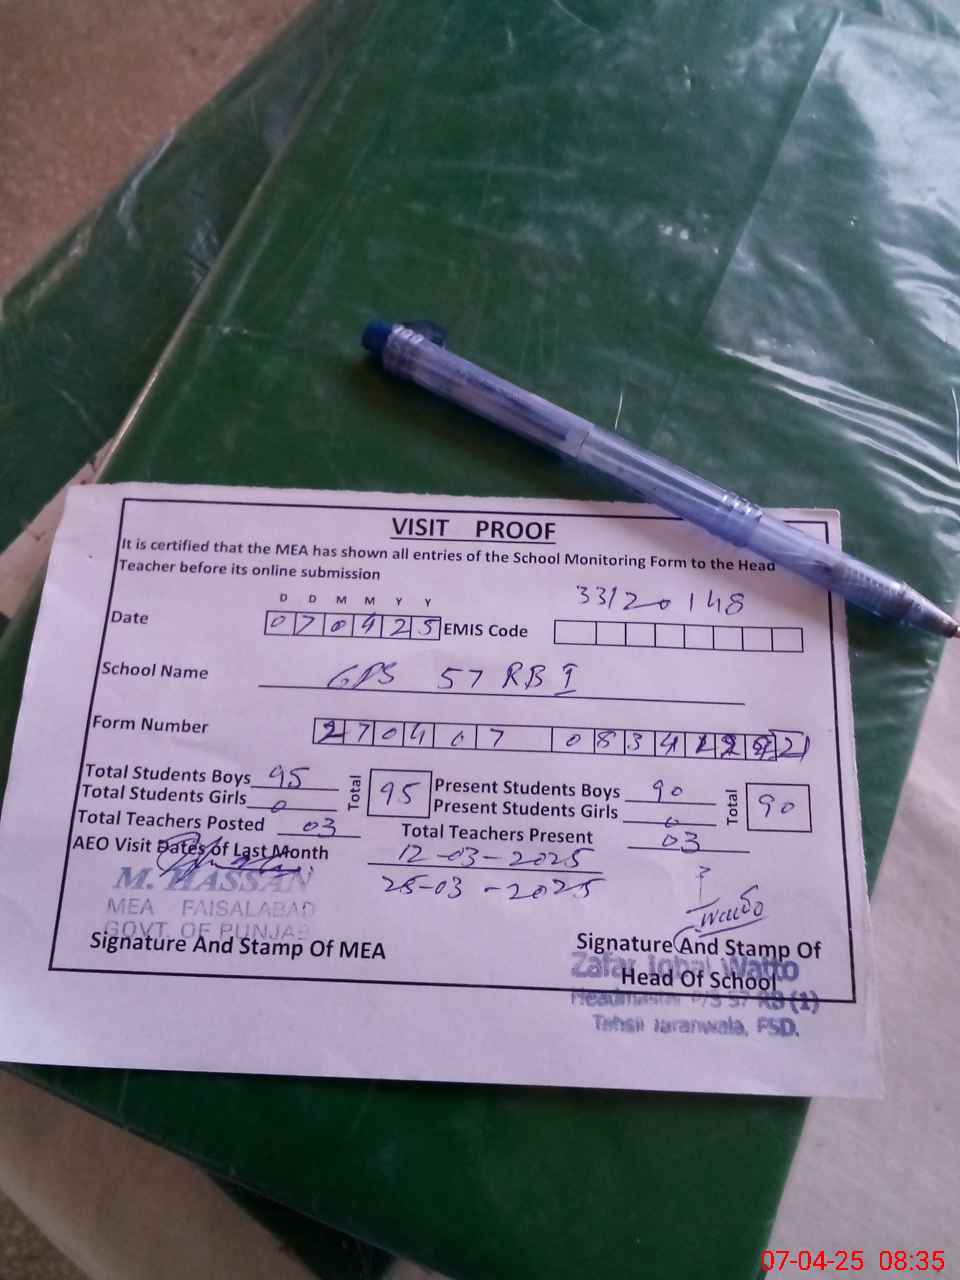 VISIT PROOF
It is certified that the MEA has shown all entries of the School Monitoring Form to the Head
Teacher before its online submission
D D M M Y Y
33120148
Date 070425 EMIS Code
School Name GPS 57 RB I
Form Number 270407 0834
Total Students Boys 95 Total 95 Present Students Boys 90 Total 90
Total Students Girls 0 Present Students Girls 0
Total Teachers Posted 03 Total Teachers Present 03
AEO Visit Dates of Last Month 12-03-2025
25-03-2025
M. HASSAN
MEA FAISALABAD
GOVT. OF PUNJAB
Signature And Stamp Of MEA
Signature And Stamp Of
Head Of School
Zafar Iqbal Watto
Headmaster P/S 57 RB (1)
Tehsil Jaranwala, FSD.
07-04-25 08:35